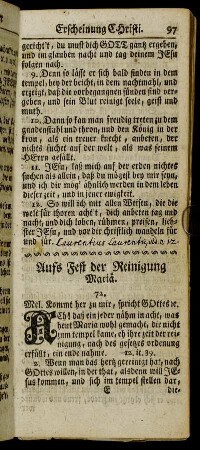 Erscheinung Christi. 97
gericht't, du must dich GOTT gantz ergeben,
und im glauben nacht und tag deinem JEsu
folgen nach.
9. Denn so läßt er sich bald finden in dem
tempel, bey der beicht, in dem nachtmahl, und
erzeigt, daß die vorbegangnen sünden sind ver-
geben, und sein Blut reinigt seele, geist und
muth.
10. Dann so kan man freudig treten zu dem
gnadenstuhl und thron, und den König in der
kron, als ein treuer knecht, anbeten, der
nichts suchet auf der welt, als was seinem
HErrn gefällt.
11. JEsu, laß mich auf der erden nichtes
suchen als allein, daß du mögest bey mir seyn,
und ich dir mög' ähnlich werden in dem leben
dieser zeit, und in jener ewigkeit.
12. So will ich mit allen Weisen, die die
welt für thoren acht't, dich anbeten tag und
nacht, und dich loben, rühmen, preisen, lieb-
ster JEsu, und vor dir christlich wandeln für
und für. Laurentius Laurentii
Aufs Fest der Reinigung
Mariä.
72.
Mel. Kommt her zu mir, spricht GOttes ec.
ACh! daß ein jeder nähm in acht, was
heut Maria wohl gemacht, die nicht
zum tempel kame, eh ihre zeit der rei-
nigung, nach des gesetzes ordenung
erfüllt, ein ende nahme.
2. Wenn man das hertz gereinigt hat, nach
GOttes willen, in der that, alsdenn will JE-
sus kommen, und sich im tempel stellen dar,
E die-